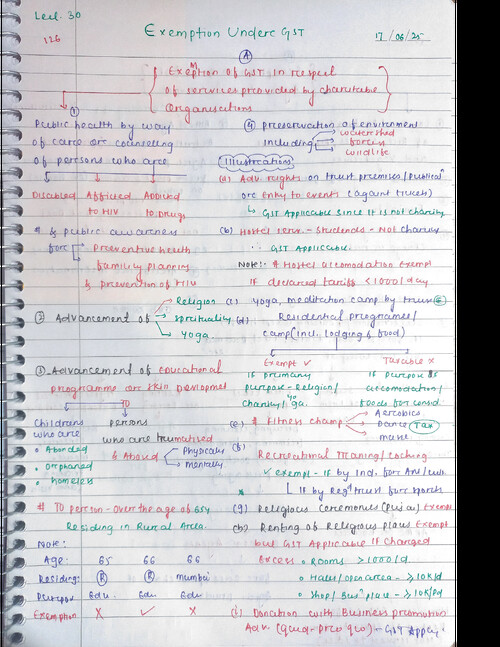 Lecl. 30
126
Exemption Undere GST
17/06/25
(A)
Exemption of GST in respect
of services provided by charitable
Organisations
①
Public health by way
of care or counseling
of persons who are
Disabled Afflicted Addicted
to HIV to Drugs
# & public awareness
for Preventive health
family planning
& prevention of HIV
② Advancement of
Religion
spirituality
yoga
③ Advancement of Educational
programme or skin Development
TO
Childrens
who are
• Abonded
• orphaned
• homeless
persons
who are traumatised
& Abused
Physically
mentally
# TO person - over the age of 65y
Residing in Rural Area.
Note:
Age: 65 66 66
Residing: (R) (R) mumbai
Purpose Edu. Edu Edu
Exemption X ✓ X
④ preservation of environment
including
watershed
forests
wildlife
Illustrations
(a) Adv. rights on trust premises/publican
or Entry to events (against tickets)
↳ GST Applicable since it is not charity
(b) Hostel serv. - Students - Not charity
∴ GST Applicable.
Note: # Hostel accomodation Exempt
If declared tariff <1000/day
(c) yoga, meditation camp by trust (E)
(d) Residential programes/
camp (incl. lodging & food)
Exempt ✓ Taxable X
If primary
purpose - Religion/
Charity/yoga.
If purpose is
accomodation/
foods for consd.
(e) # Fitness champ
Aerobics
Dance (Tax)
music
(f) Recreational training/coching
✓ exempt - if by Ind. for Art/cul.
If by Regd trust for sports
(g) Religious Ceremonies (puja) Exempt
(h) Renting of Religious place Exempt
but GST Applicable if Charged
Excess • Rooms >1000/d
• Halls/open area - ≥10K/d
• shop/Busn place - ≥10K/pd
(i) Donation with Business promotion
Adv. (quid-pro quo) - GST Appli.